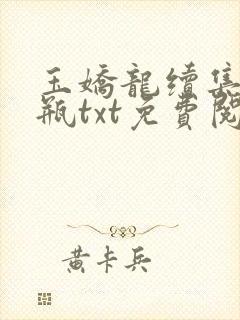 玉嬌龍續集
瓶txt免費閱
黃卡兵